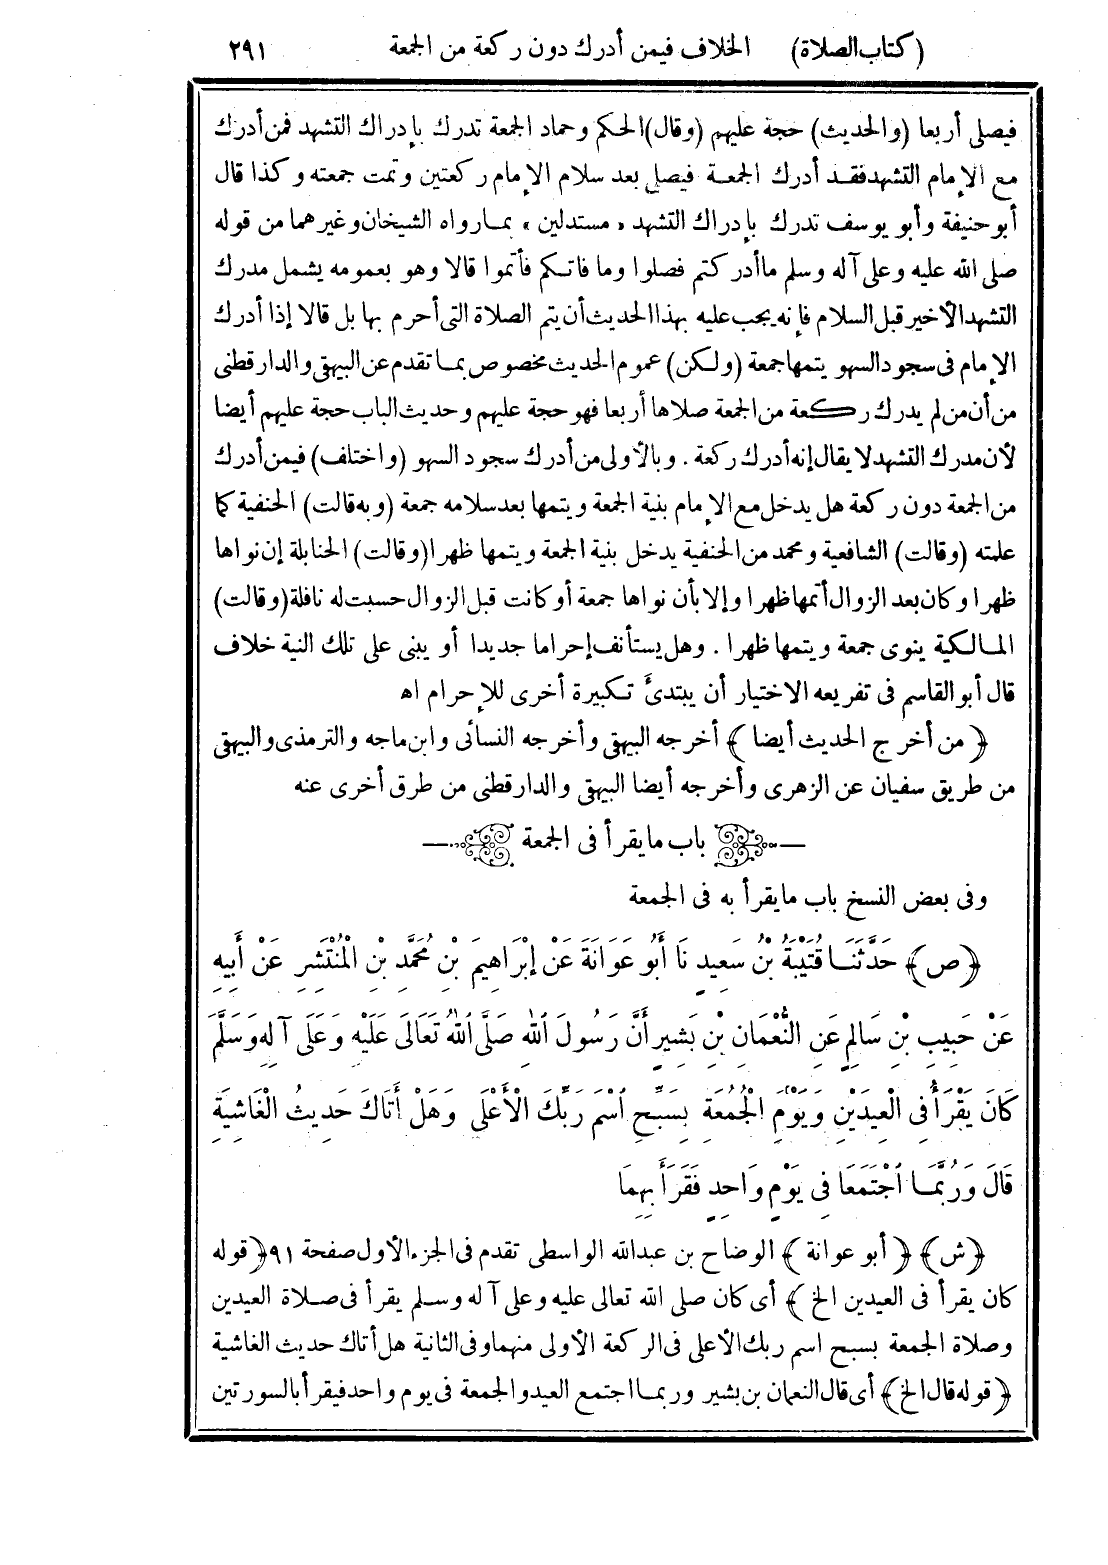 (كتاب الصلاة) الخلاف فيمن أدرك دون ركعة من الجمعة ٢٩١
فيصلى أربعا (والحديث) حجة عليهم (وقال) الحكم وحماد الجمعة تدرك بإدراك التشهد فمن أدرك
مع الإمام التشهد فقد أدرك الجمعة فيصلى بعد سلام الإمام ركعتين وتمت جمعته وكذا قال
أبو حنيفة وأبو يوسف تدرك بإدراك التشهد «مستدلين» بما رواه الشيخان وغيرهما من قوله
صلى الله عليه وعلى آله وسلم ما أدركتم فصلوا وما فاتكم فأتموا قالا وهو بعمومه يشمل مدرك
التشهد الأخير قبل السلام فإنه يجب عليه بهذا الحديث أن يتم الصلاة التى أحرم بها بل قالا إذا أدرك
الإمام فى سجود السهو يتمها جمعة (ولكن) عموم الحديث مخصوص بما تقدم عن البيهقى والدارقطنى
من أن من لم يدرك ركعة من الجمعة صلاها أربعا فهو حجة عليهم وحديث الباب حجة عليهم أيضا
لأن مدرك التشهد لا يقال إنه أدرك ركعة . وبالأولى من أدرك سجود السهو (واختلف) فيمن أدرك
من الجمعة دون ركعة هل يدخل مع الإمام بنية الجمعة ويتمها بعد سلامه جمعة (وبه قالت) الحنفية كما
علمته (وقالت) الشافعية ومحمد من الحنفية يدخل بنية الجمعة ويتمها ظهرا (وقالت) الحنابلة إن نواها
ظهرا وكان بعد الزوال أتمها ظهرا وإلا بأن نواها جمعة أو كانت قبل الزوال حسبت له نافلة (وقالت)
المالكية ينوى جمعة ويتمها ظهرا . وهل يستأنف إحراما جديدا أو يبنى على تلك النية خلاف
قال أبو القاسم فى تفريعه الاختيار أن يبتدئ تكبيرة أخرى للإحرام اه
﴿من أخرج الحديث أيضا﴾ أخرجه البيهقى وأخرجه النسائى وابن ماجه والترمذى والبيهقى
من طريق سفيان عن الزهرى وأخرجه أيضا البيهقى والدارقطنى من طرق أخرى عنه
باب ما يقرأ فى الجمعة
وفى بعض النسخ باب ما يقرأ به فى الجمعة
﴿ص﴾ حَدَّثَنَا قُتَيْبَةُ بْنُ سَعِيدٍ نَا أَبُو عَوَانَةَ عَنْ إِبْرَاهِيمَ بْنِ مُحَمَّدِ بْنِ الْمُنْتَشِرِ عَنْ أَبِيهِ
عَنْ حَبِيبِ بْنِ سَالِمٍ عَنِ النُّعْمَانِ بْنِ بَشِيرٍ أَنَّ رَسُولَ اللهِ صَلَّى اللهُ تَعَالَى عَلَيْهِ وَعَلَى آلِهِ وَسَلَّمَ
كَانَ يَقْرَأُ فِى الْعِيدَيْنِ وَيَوْمَ الْجُمُعَةِ بِسَبِّحِ اسْمَ رَبِّكَ الْأَعْلَى وَهَلْ أَتَاكَ حَدِيثُ الْغَاشِيَةِ
قَالَ وَرُبَّمَا اجْتَمَعَا فِى يَوْمٍ وَاحِدٍ فَقَرَأَ بِهِمَا
﴿ش﴾ ﴿أبو عوانة﴾ الوضاح بن عبد الله الواسطى تقدم فى الجزء الأول صفحة ٩١ ﴿قوله
كان يقرأ فى العيدين الخ﴾ أى كان صلى الله تعالى عليه وعلى آله وسلم يقرأ فى صلاة العيدين
وصلاة الجمعة بسبح اسم ربك الأعلى فى الركعة الأولى منهما وفى الثانية هل أتاك حديث الغاشية
﴿قوله قال الخ﴾ أى قال النعمان بن بشير وربما اجتمع العيد والجمعة فى يوم واحد فيقرأ بالسورتين